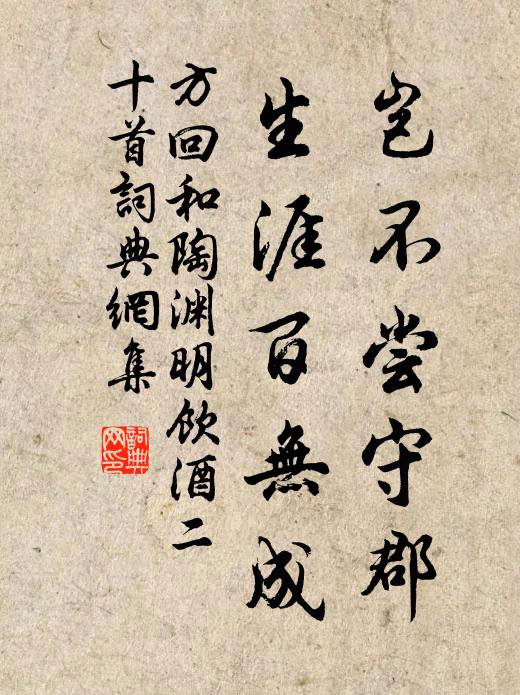 岂不尝守郡
生涯百無成
方回和陶渊明饮酒二
十首詞典網集
詞典网印